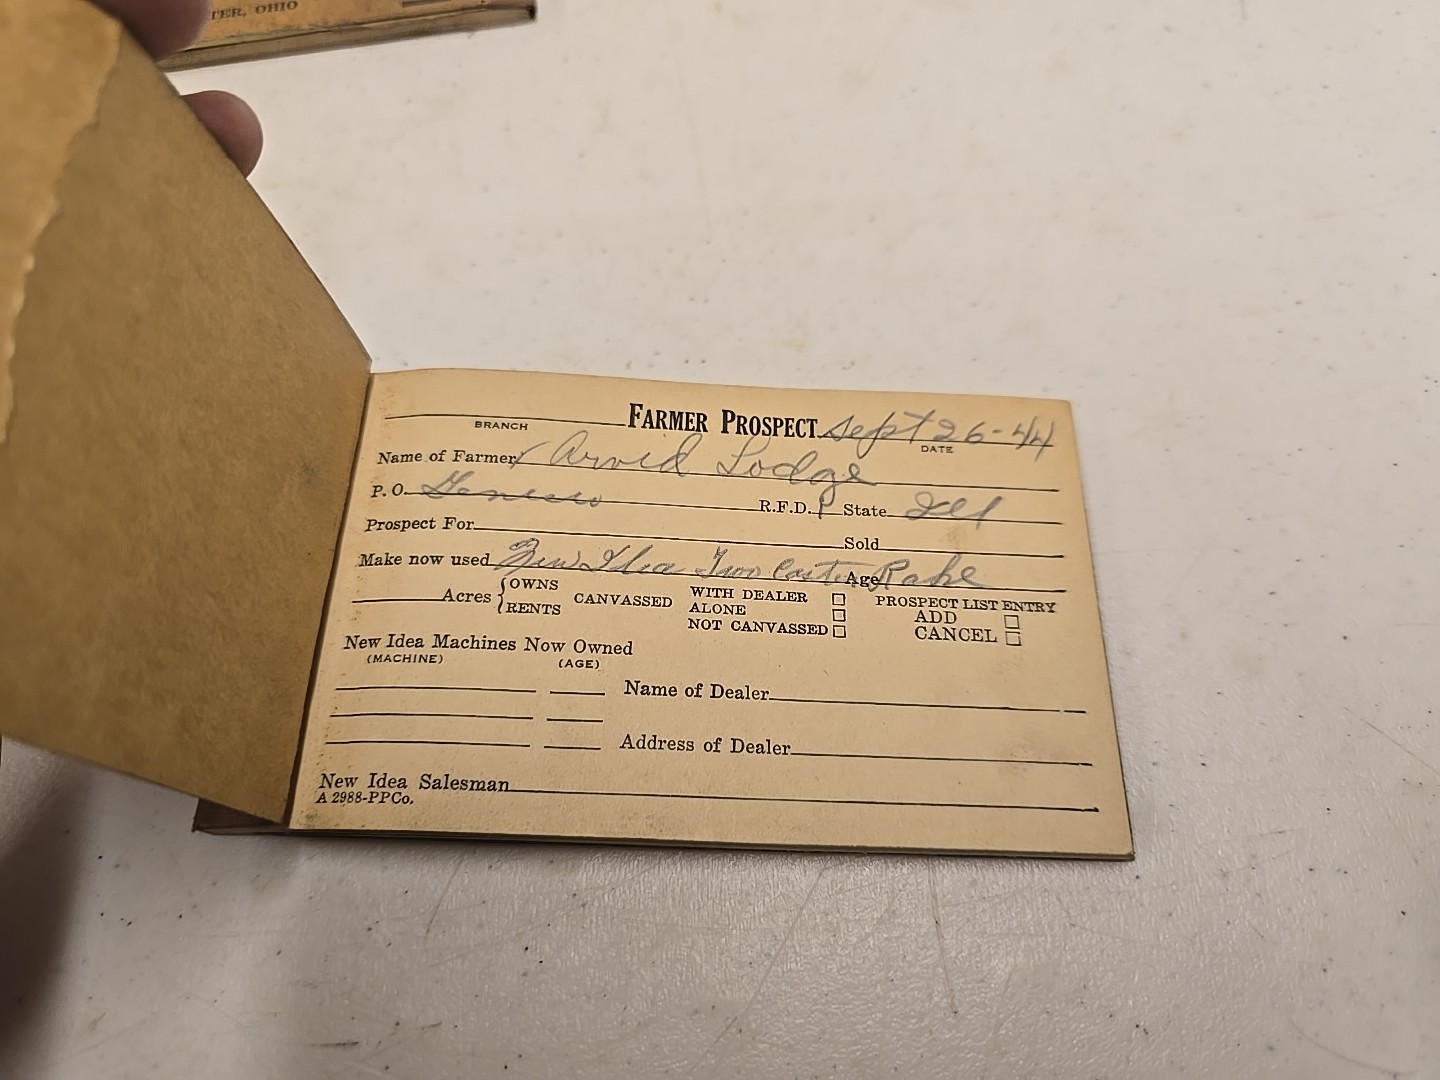 TER, OHIO
FARMER PROSPECT Sept 26-44
BRANCH DATE
Name of Farmer Arvid Lodge
P. O. Geneseo R.F.D. 1 State Ill
Prospect For Sold
Make now used New Idea Two Caster Age Rake
Acres { OWNS RENTS CANVASSED WITH DEALER □ ALONE □ NOT CANVASSED □ PROSPECT LIST ENTRY ADD □ CANCEL □
New Idea Machines Now Owned
(MACHINE) (AGE)
Name of Dealer
Address of Dealer
New Idea Salesman
A 2988-PPCo.